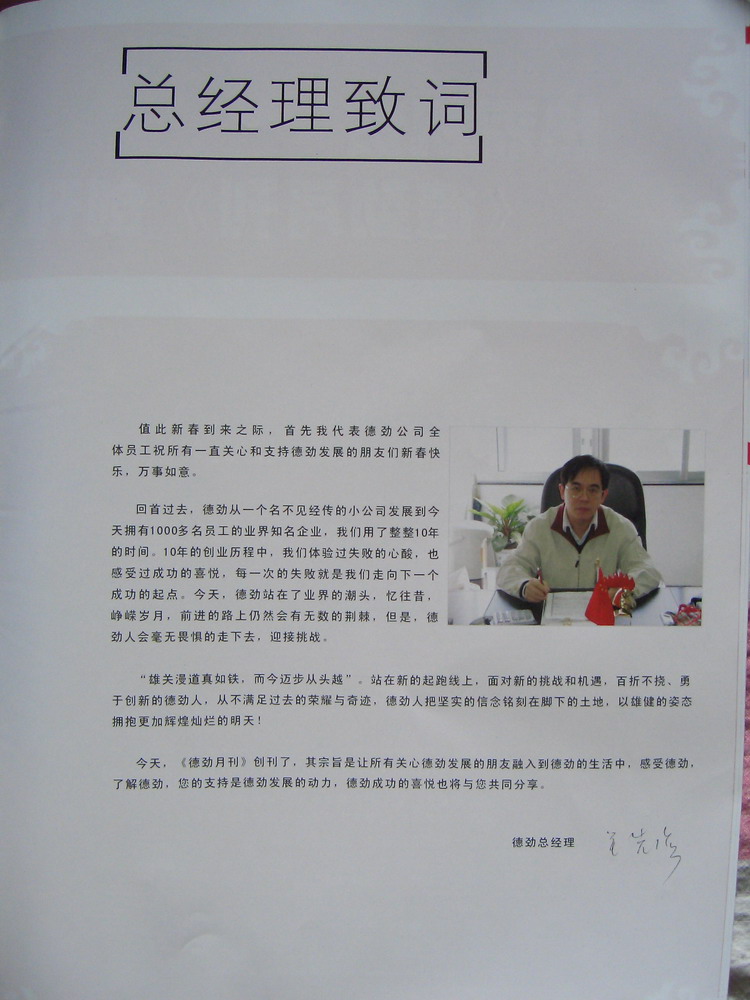 总经理致词
值此新春到来之际，首先我代表德劲公司全
体员工祝所有一直关心和支持德劲发展的朋友们新春快
乐，万事如意。
回首过去，德劲从一个名不见经传的小公司发展到今
天拥有1000多名员工的业界知名企业，我们用了整整10年
的时间。10年的创业历程中，我们体验过失败的心酸，也
感受过成功的喜悦，每一次的失败就是我们走向下一个
成功的起点。今天，德劲站在了业界的潮头，忆往昔，
峥嵘岁月，前进的路上仍然会有无数的荆棘，但是，德
劲人会毫无畏惧的走下去，迎接挑战。
“雄关漫道真如铁，而今迈步从头越”。站在新的起跑线上，面对新的挑战和机遇，百折不挠、勇
于创新的德劲人，从不满足过去的荣耀与奇迹，德劲人把坚实的信念铭刻在脚下的土地，以雄健的姿态
拥抱更加辉煌灿烂的明天！
今天，《德劲月刊》创刊了，其宗旨是让所有关心德劲发展的朋友融入到德劲的生活中，感受德劲，
了解德劲，您的支持是德劲发展的动力，德劲成功的喜悦也将与您共同分享。
德劲总经理